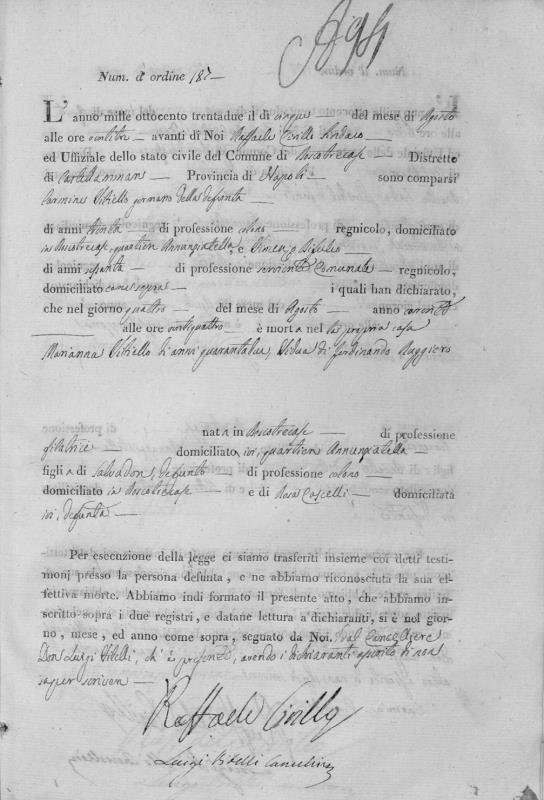 Num. d'ordine 187
L'anno mille ottocento trentadue il dì cinque del mese di Agosto
alle ore ventitre avanti di Noi Raffaele Cirillo Sindaco
ed Uffiziale dello stato civile del Comune di Boscotrecase Distretto
di Castellammare Provincia di Napoli sono comparsi
Carmine Vitiello germano della defunta
di anni trenta di professione colono regnicolo, domiciliato
in Boscotrecase, quartiere Annunziatella, e Vincenzo
di anni sessanta di professione serviente Comunale regnicolo,
domiciliato come sopra i quali han dichiarato,
che nel giorno quattro del mese di Agosto anno corrente
alle ore ventiquattro è morta nel la propria casa
Marianna Vitiello di anni quarantadue, Vidua di Ferdinando Ruggiero
nata in Boscotrecase di professione
filatrice domiciliata ivi, quartiere Annunziatella
figlia di Salvadore, defunto di professione colono
domiciliato in Boscotrecase e di Rosa domiciliata
ivi, defunta
Per esecuzione della legge ci siamo trasferiti insieme coi detti testi-
monj presso la persona defunta, e ne abbiamo riconosciuta la sua ef-
fettiva morte. Abbiamo indi formato il presente atto, che abbiamo in-
scritto sopra i due registri, e datane lettura a' dichiaranti, si è nel gior-
no, mese, ed anno come sopra, segnato da Noi. e dal Cancelliere
Don Luigi Vitelli, ch'è presente, avendo i dichiaranti asserito di non
saper scrivere
Raffaele Cirillo
Luigi Vitelli Cancelliere